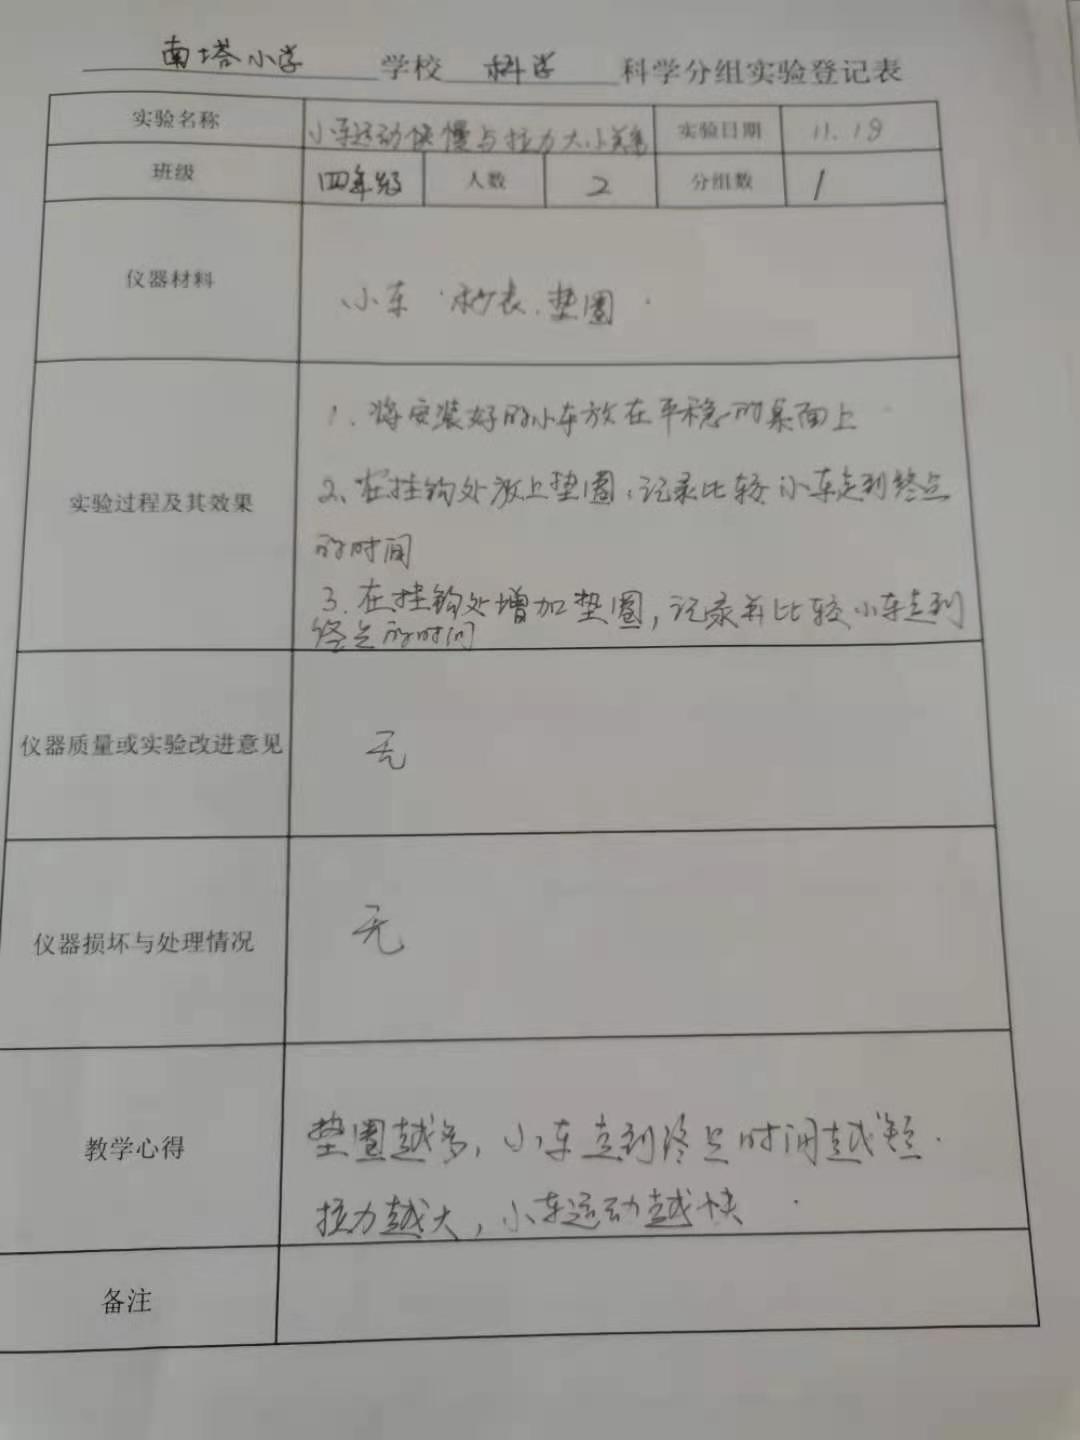 南塔小学 学校 科学 科学分组实验登记表
实验名称 小车运动快慢与拉力大小关系 实验日期 11.19
班级 四年级 人数 2 分组数 1
仪器材料 小车、秒表、垫圈.
1. 将安装好的小车放在平稳的桌面上
2、在挂钩处放上垫圈,记录比较小车走到终点
实验过程及其效果
的时间
3. 在挂钩处增加垫圈,记录并比较小车走到
终点的时间
仪器质量或实验改进意见 无
仪器损坏与处理情况 无
教学心得 垫圈越多,小车走到终点时间越短.
拉力越大,小车运动越快.
备注